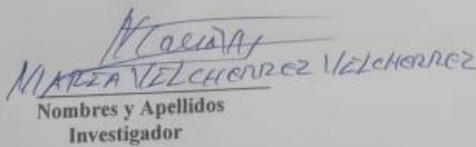 MARIA VELCHERREZ VELCHERREZ
Nombres y Apellidos
Investigador